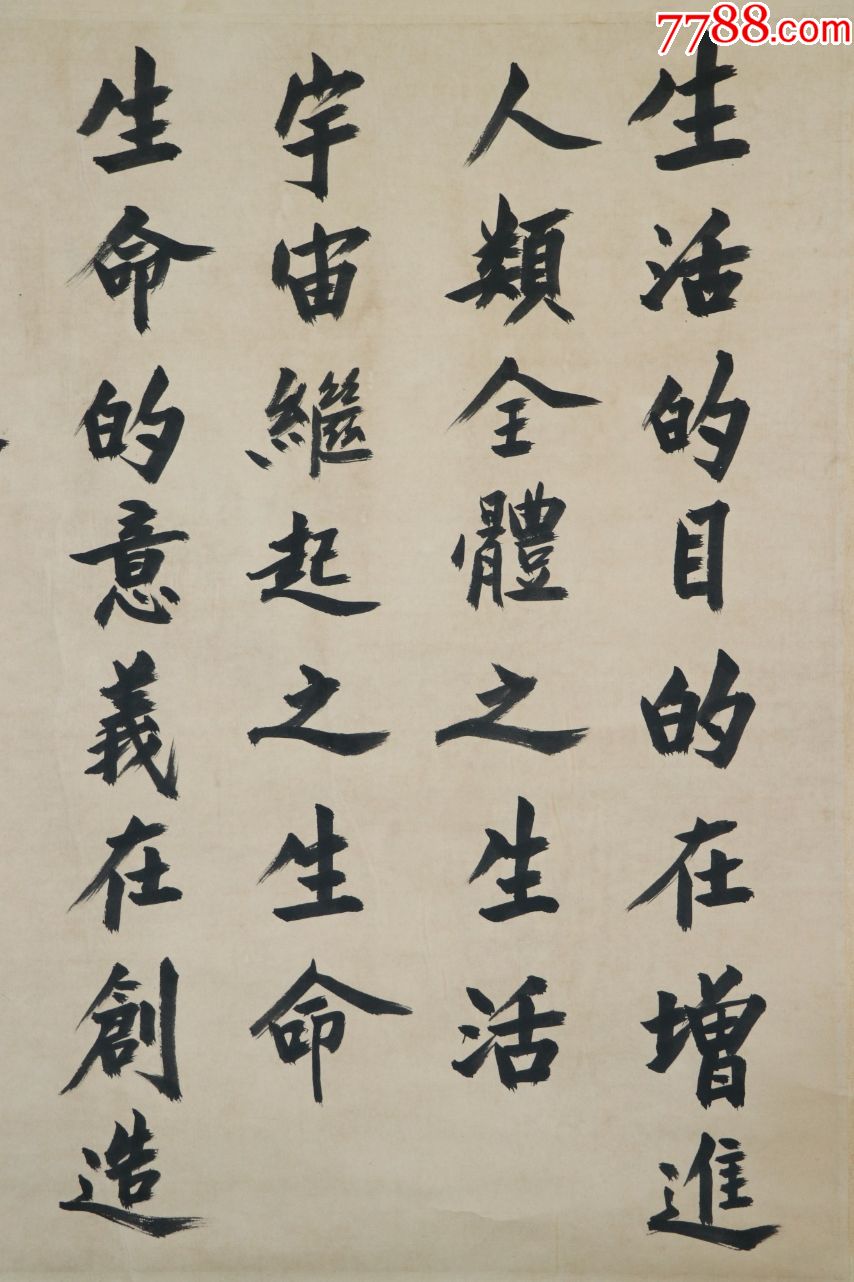 7788.com
生活的目的在增進
人類全體之生活
宇宙繼起之生命
生命的意義在創造